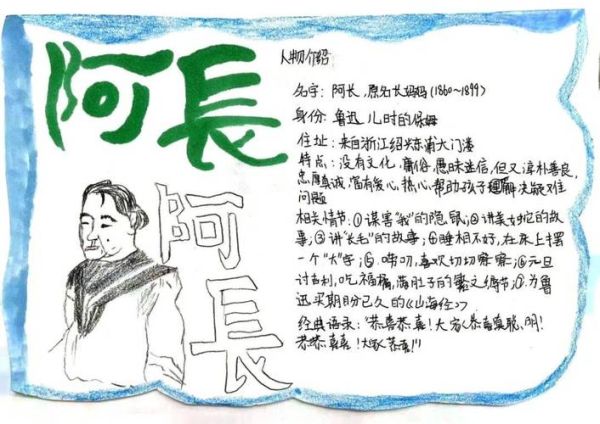 阿長
阿長
人物介绍
名字：阿长，原名长妈妈(1860~1899)
身份：鲁迅儿时的保姆
住址：来自浙江绍兴东浦大门溇
特点：没有文化、庸俗、愚昧迷信，但又淳朴善良、
忠厚真诚，富有爱心、热心，帮助孩子理解决疑难
问题
相关情节：①谋害"我"的隐鼠；②讲美女蛇的故
事；③讲"长毛"的故事；④睡相不好，在床上摆
一个"大"字；⑤唠叨，喜欢切切察察；⑥元旦
讨吉利，吃福橘，满肚子的繁文缛节；⑦为鲁
迅买期盼已久的《山海经》
经典语录："恭喜恭喜！大家恭喜真聪明！
恭恭喜喜！大家恭喜！"